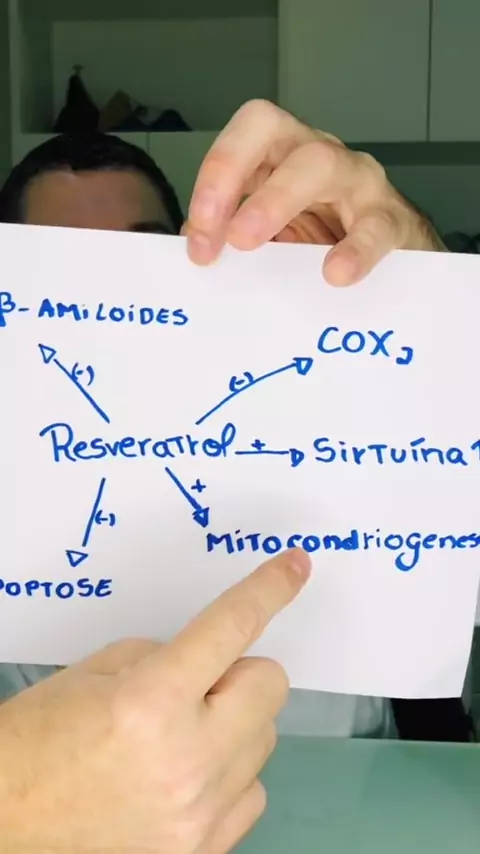 β-AMiLOiDES
(-)
COX2
(-)
Resveratrol + Sirtuína 1
+
(-)
MiTocondriogenes
POPTOSE